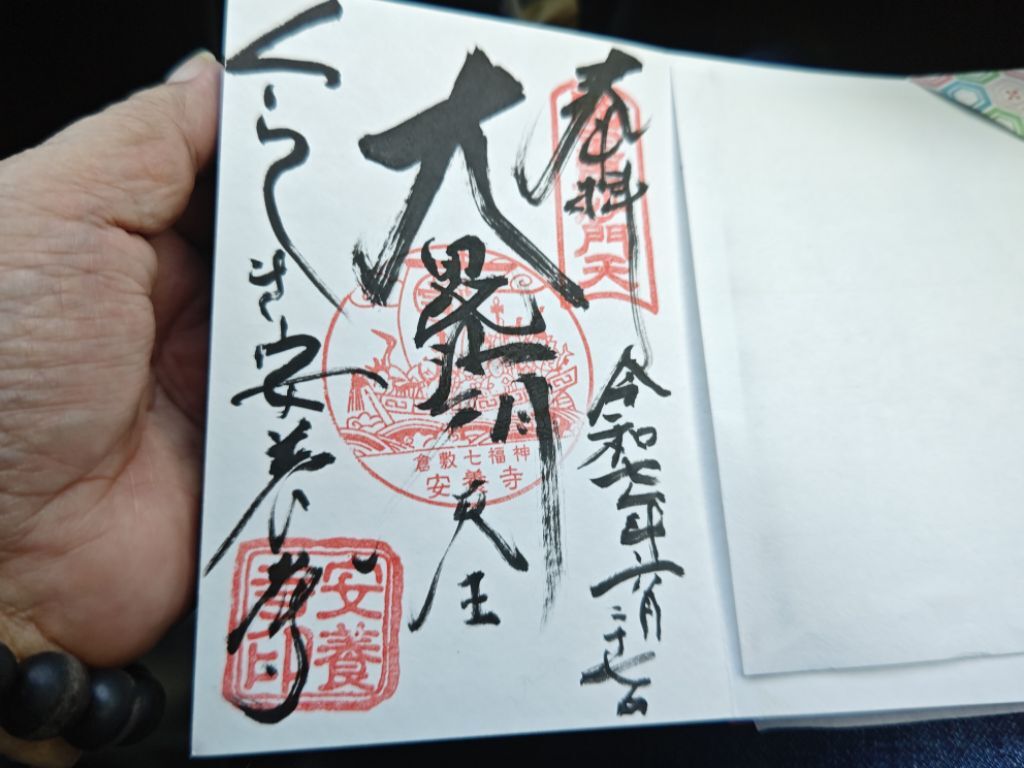 奉拝
令和七年六月二十七日
大毘沙門天王
くらしき安養寺
門天
倉敷七福神
安養寺
安養寺印